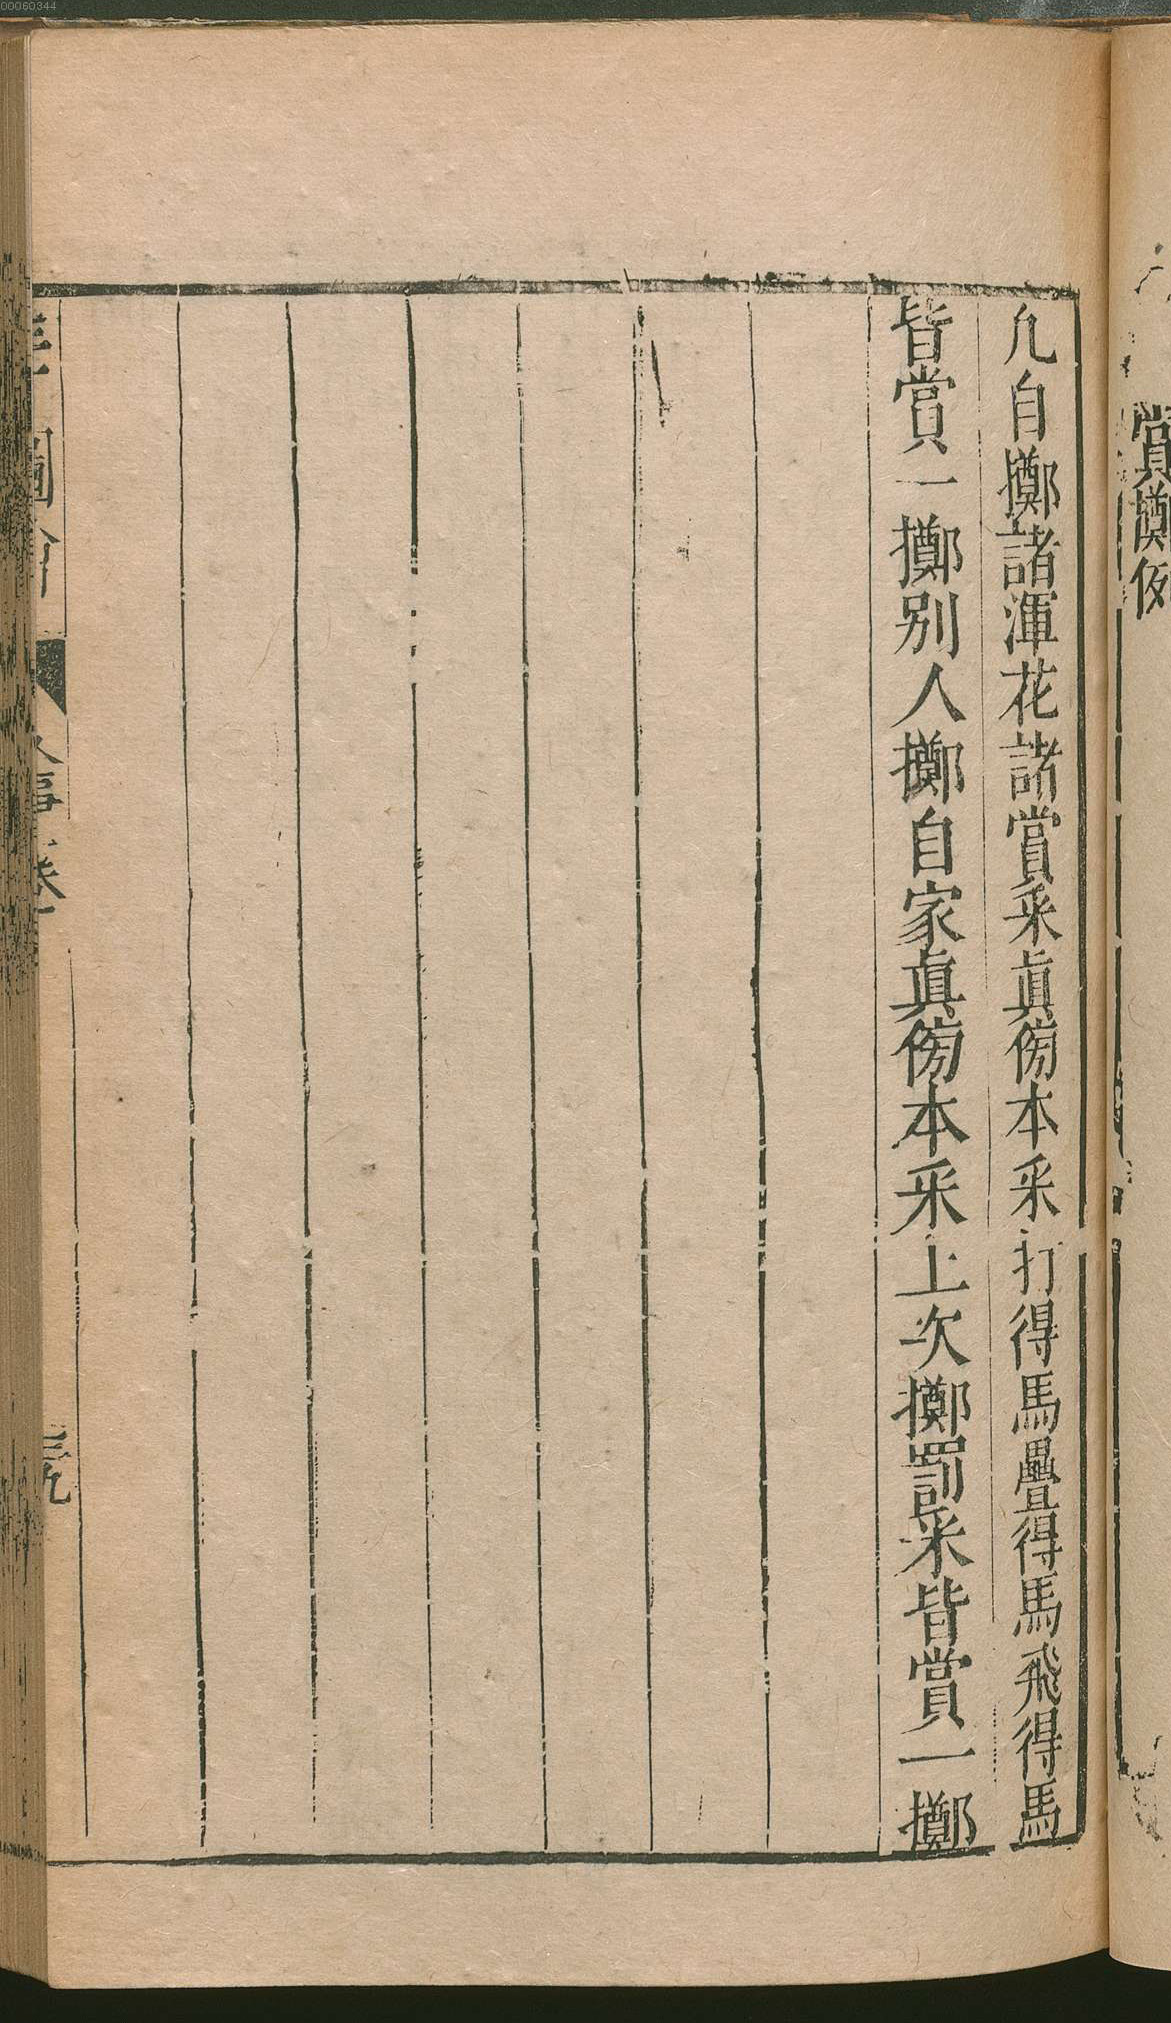 賞擲例
凡自擲諸渾花諸賞采眞傍本采打得馬疊得馬飛得馬
皆賞一擲別人擲自家眞傍本采上次擲罰采皆賞一擲
圖會
人事 卷
三九
00060344